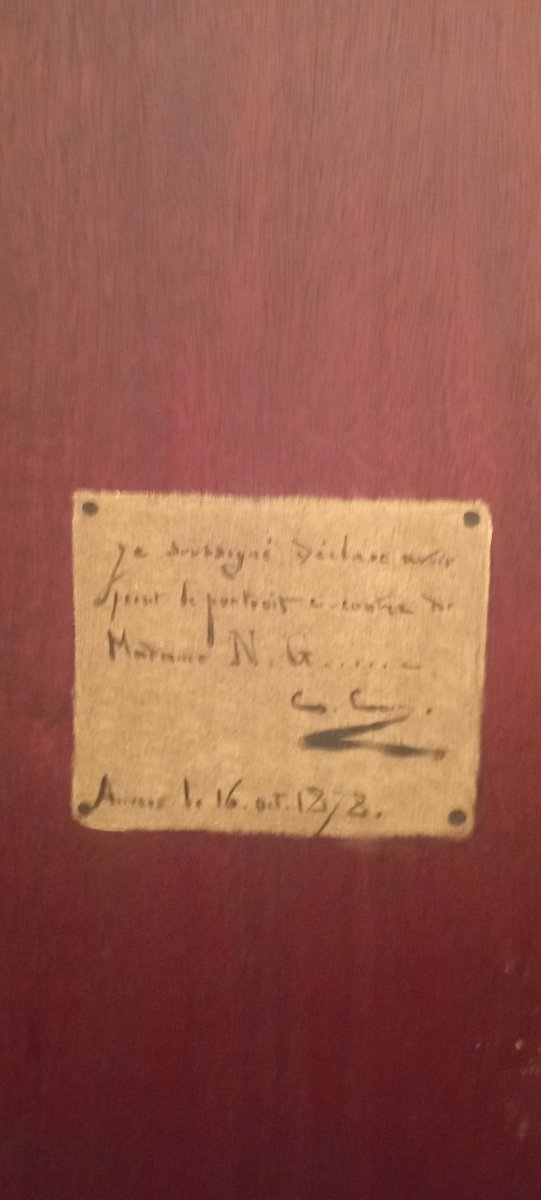 Je soussigné déclare avoir
peint le portrait ci-contre de
Madame N. G......
C. C.
Anvers le 16. oct. 1878.